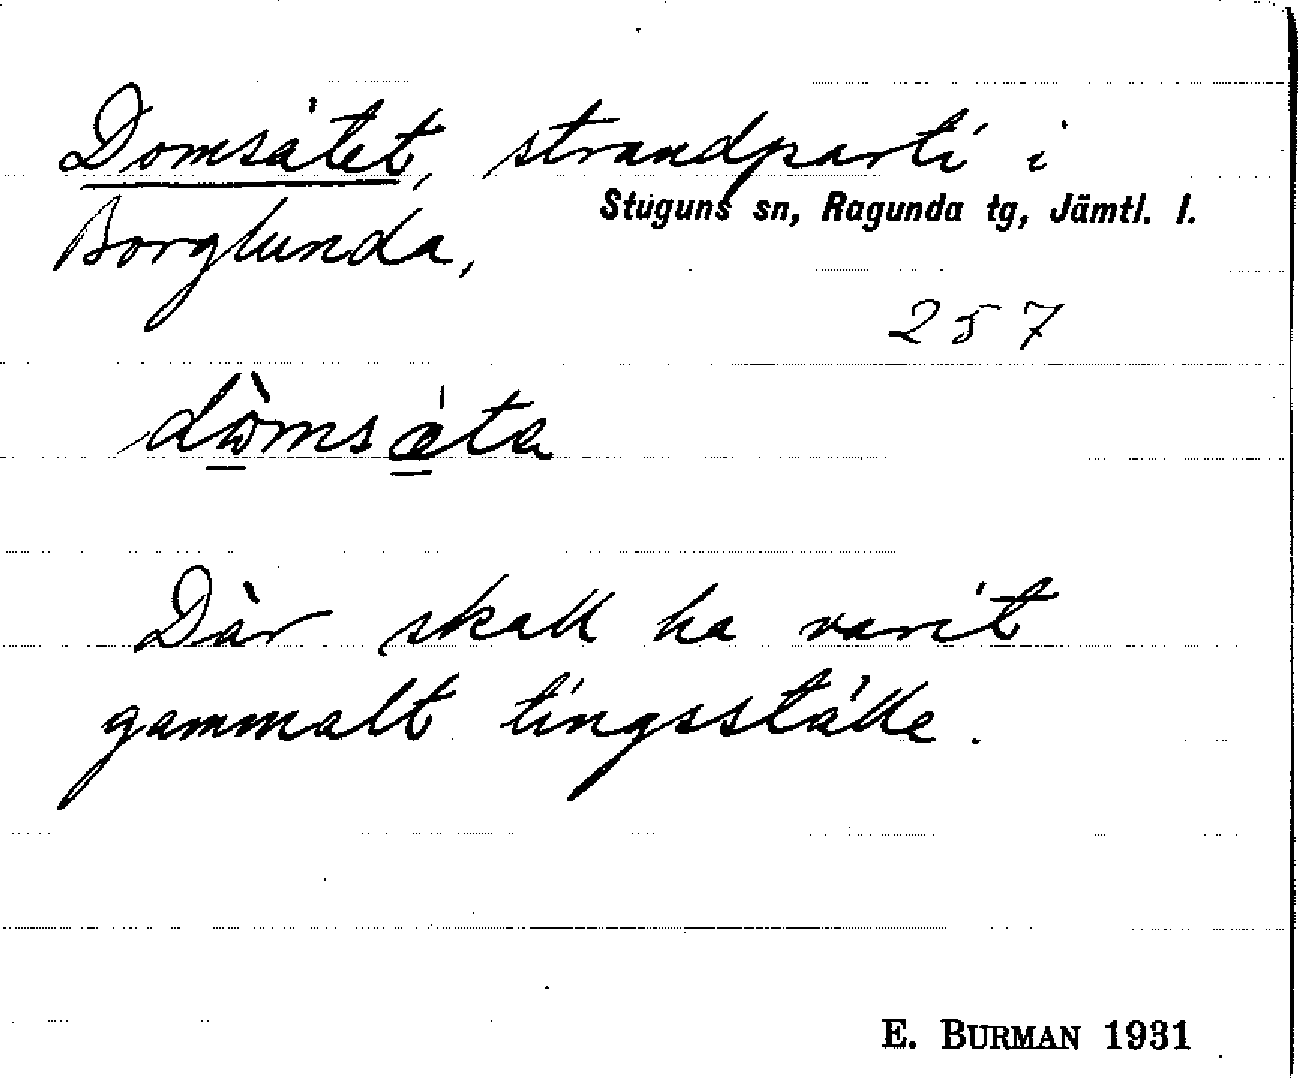 Domsätet, strandparti i
Stuguns sn, Ragunda tg, Jämtl. l.
Borglunda,
257
dὼmsæ̀ta
Där skall ha varit
gammalt tingsställe.
E. BURMAN 1931